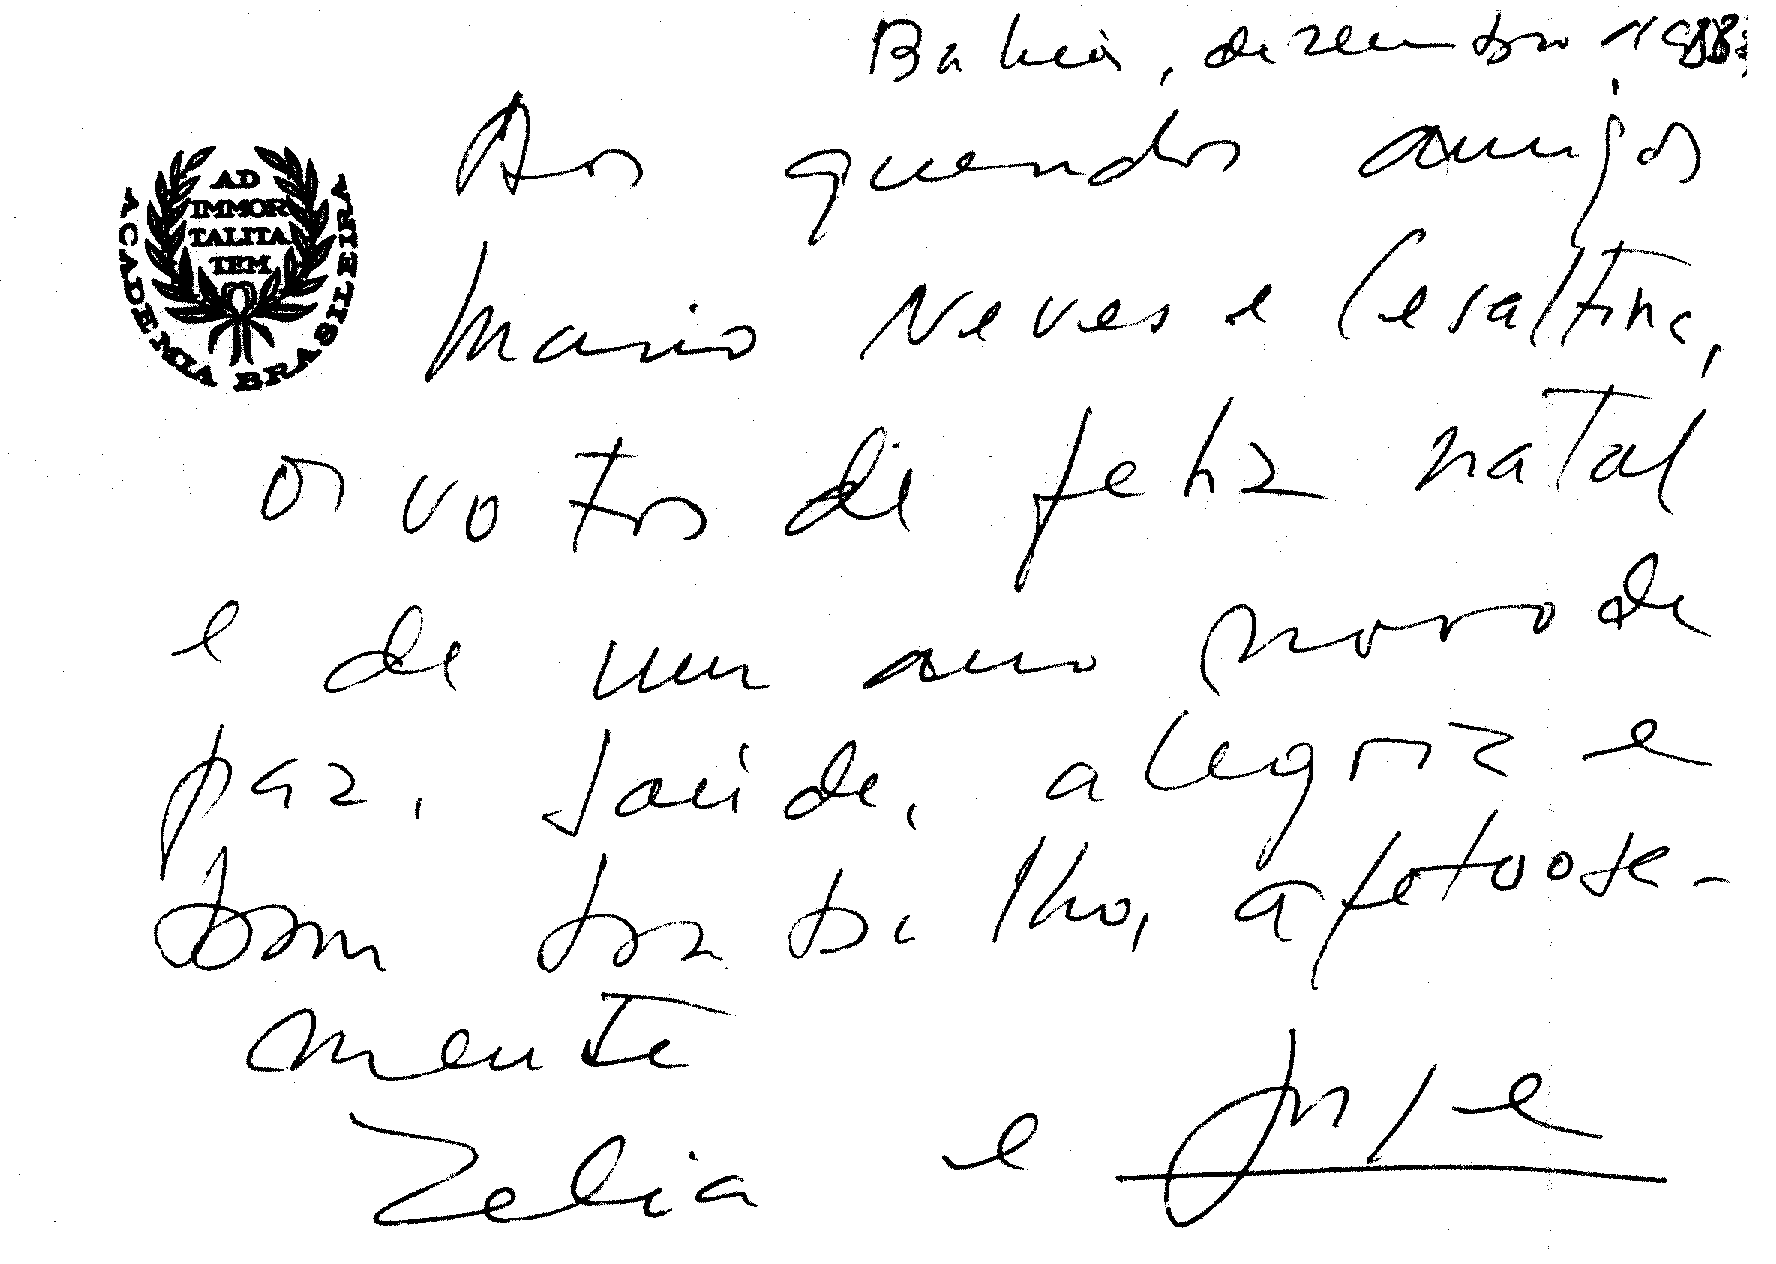 Bahia, dezembro 1988:
Aos queridos amigos
Mario Neves e Cesaltina,
os votos de feliz natal
e de um ano novo de
paz, saúde, alegria e
bom trabalho, afetuosa-
mente
Zelia e Jorge
AD
IMMOR
TALITA
TEM
ACADEMIA BRASILEIRA